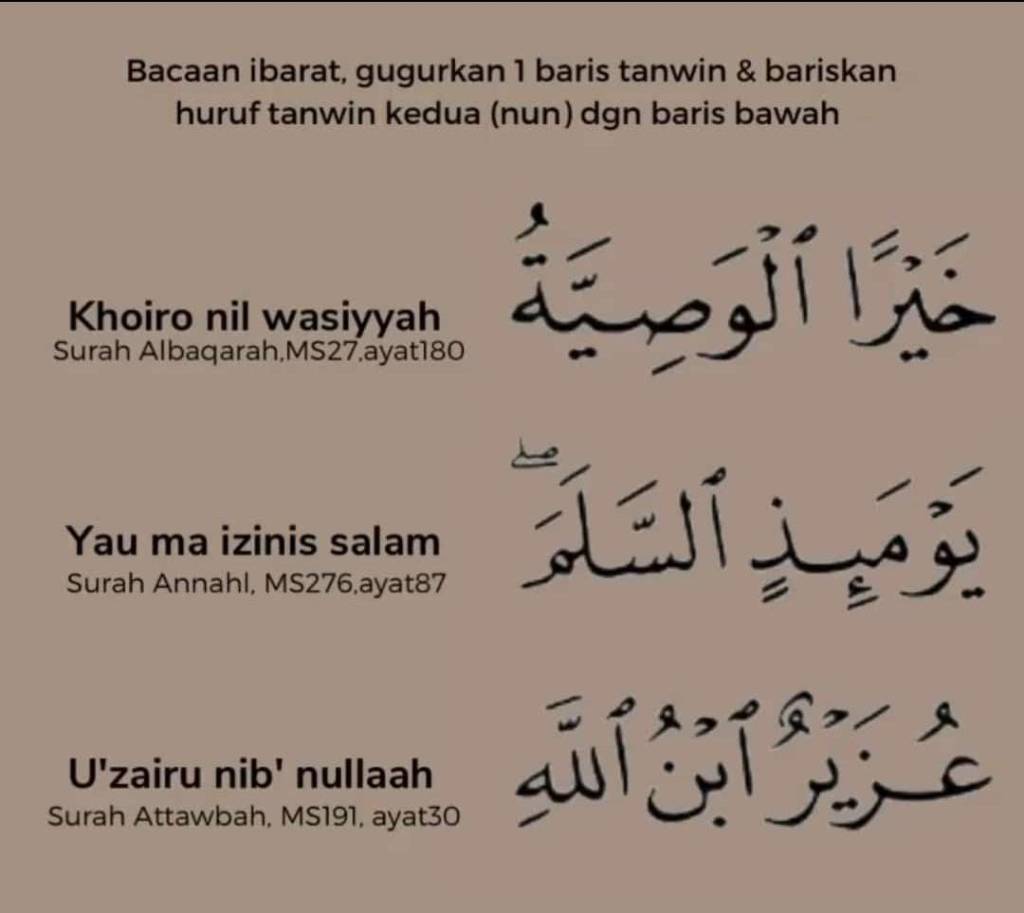 Bacaan ibarat, gugurkan 1 baris tanwin & bariskan
huruf tanwin kedua (nun) dgn baris bawah
خَيْرًا ٱلْوَصِيَّةُ
Khoiro nil wasiyyah
Surah Albaqarah,MS27,ayat180
يَوْمَئِذٍ ٱلسَّلَمَ ۖ
Yau ma izinis salam
Surah Annahl, MS276,ayat87
عُزَيْرٌ ٱبْنُ ٱللَّهِ
U'zairu nib' nullaah
Surah Attawbah, MS191, ayat30